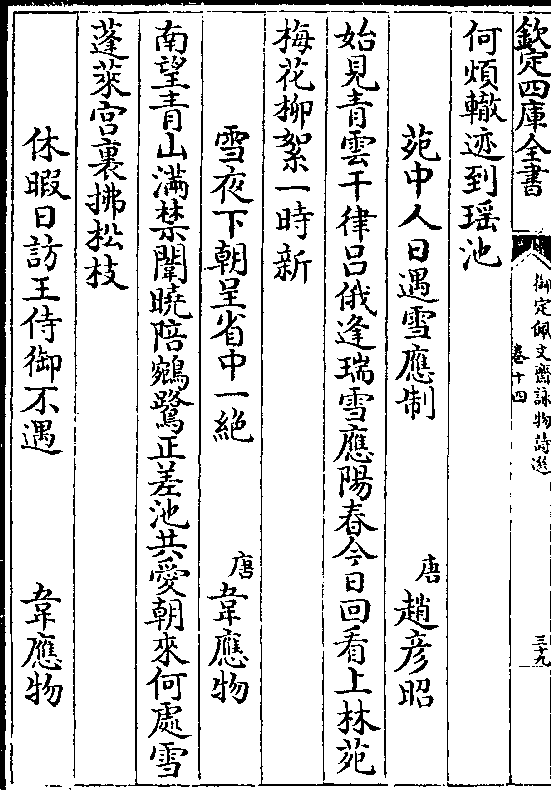 欽定四庫全書
御定佩文齋詠物詩選
卷十四
三十九
何煩轍迹到瑤池
苑中人日遇雪應制
唐 趙彥昭
始見青雲干律呂俄逢瑞雪應陽春今日回看上林苑
梅花柳絮一時新
雪夜下朝呈省中一絶
唐 韋應物
南望青山滿禁闈曉陪鵷鷺正差池共愛朝來何處雪
蓬萊宮裏拂松枝
休暇日訪王侍御不遇
韋應物